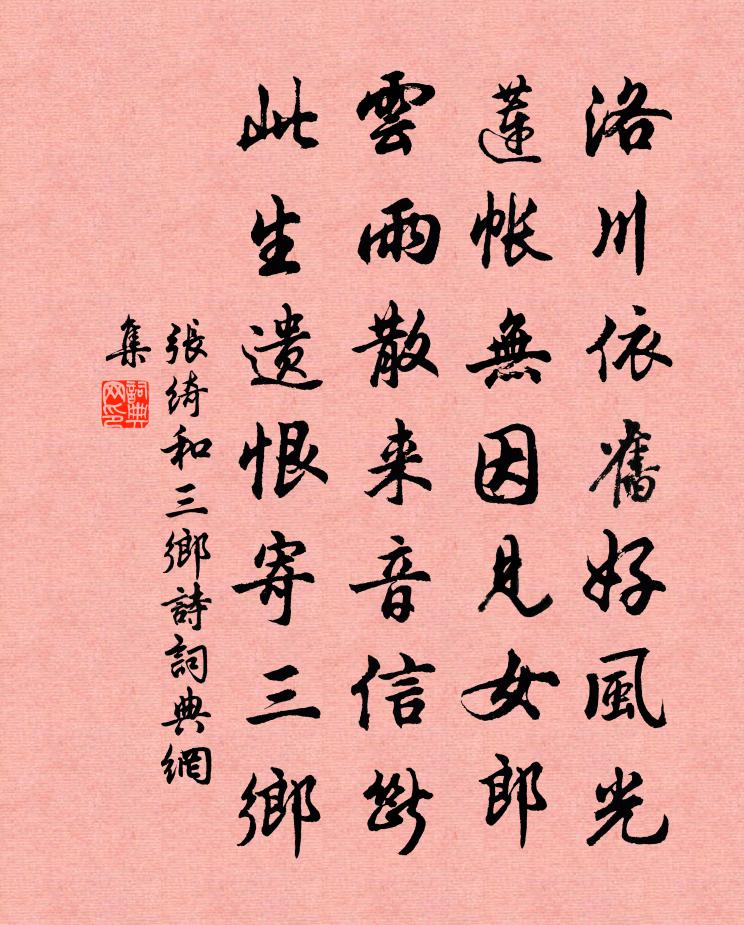 洛川依舊好風光
蓮帳無因見女郎
雲雨散来音信斷
此生遺恨寄三鄉
張綺和三鄉詩詞典網
集
詞典网印